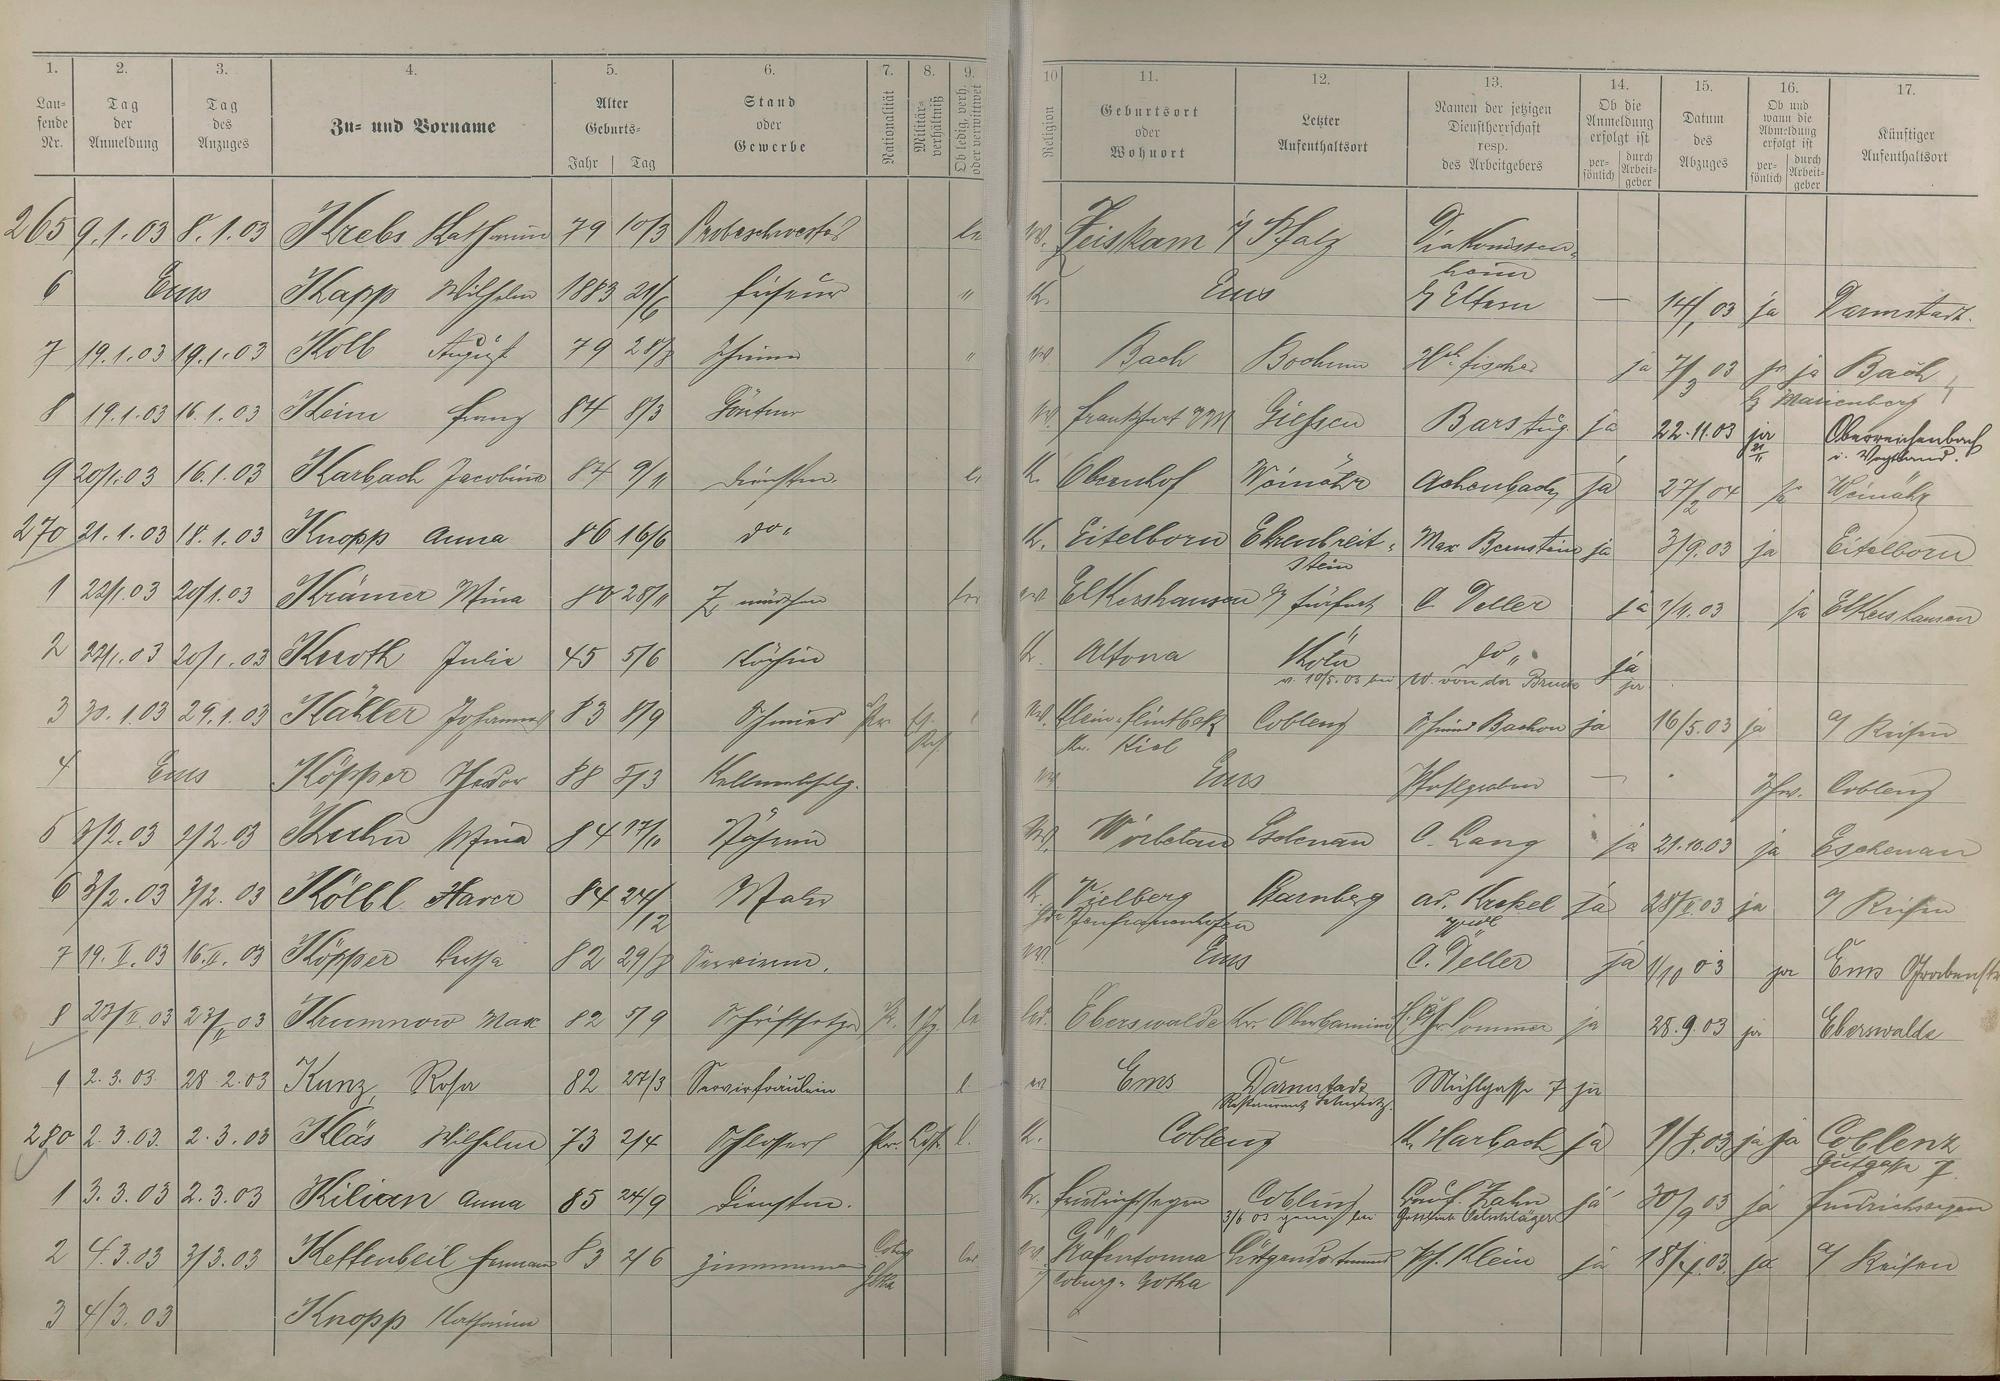 1. 2. 3. 4. 5. 6. 7. 8. 9. 10 11. 12. 13. 14. 15. 16. 17.
Lau-
fende
Nr.
Tag
der
Anmeldung
Tag
des
Anzuges
Zu- und Vorname
Alter
Geburts-
Jahr Tag
Stand
oder
Gewerbe
Nationalität
Militär-
verhältniß
Ob ledig, verh.
oder verwittwet
Religion
Geburtsort
oder
Wohnort
Letzter
Aufenthaltsort
Namen der jetzigen
Dienstherrschaft
resp.
des Arbeitgebers
Ob die
Anmeldung
erfolgt ist
per-
sönlich
durch
Arbeit-
geber
Datum
des
Abzuges
Ob und
wann die
Abmeldung
erfolgt ist
per-
sönlich
durch
Arbeit-
geber
Künftiger
Aufenthaltsort
265 9.1.03 8.1.03 Krebs Katharina 79 10/3 Probeschwester Zeiskam Pfalz Diakonissen-
heim
6 Ems Kapp Wilhelm 1883 21/6 Friseur " K. Ems Eltern — 14/1 03 ja Darmstadt.
7 19.1.03 19.1.03 Kolb August 79 " Bach Bochum Fischer ja 7/3 03 ja Bach
Marienberg
8 19.1.03 16.1.03 Keim Franz 84 8/3 Gärtner Frankfurt Giessen ja 22.11.03 ja Oberreichenbach
i. Vogtland.
9 20/1.03 16.1.03 Karbach Jacobina 84 9/11 Dienstm. K. Obernhof Weinähr Achenbach ja 27/2 04 Weinähr
270 21.1.03 18.1.03 Knopp Anna 86 16/6 do" K. Eitelborn Ehrenbreit-
stein Max Bernstein ja 3/9.03 ja Eitelborn
1 22/1.03 20/1.03 Krämer Mina 80 28/11 Z. mädchen Elkershausen Fürfurt C Deller ja 1/4.03 ja Elkershausen
2 22/1.03 20/1.03 Knoth Julie 45 5/6 Köchin K. Altona Köln do" ja
v. 10/5.03 W. von der ja
3 30.1.03 29.1.03 Kähler Johannes 83 8/9 Schmied Pr. Klein-Flintbek Coblenz Bachon ja 16/5.03 ja a/ Reisen
Kr. Kiel
4 Ems Köpper Theodor 88 5/3 Ems Pfahlgraben — Coblenz
5 2/2.03 2/2.03 Kuhn Mina 84 17/10 Näherin Eschenau C. Lang ja 21.10.03 ja Eschenau
6 3/2.03 3/2.03 Kölbl Xaver 84 24/12 Maler K. Vielberg Ad. Krekel ja 28/II.03 ja a/ Reisen
7 19.II.03 16.II.03 Köpper 82 29/8 Servierm. Ems C. Deller ja 1/10 03 ja Ems Grabenstr
8 23/II 03 23/II 03 Krumnow Max 82 5/9 Schriftsetzer Eberswalde Kr. Oberbarnim Sommer ja 28.9.03 ja Eberswalde
9 2.3.03 28 2.03 Kunz, Rosa 82 27/3 Servierfräulein l. Ems Darmstadt Mühlgasse 7 ja
280 2.3.03. 2.3.03 Kläs Wilhelm 73 2/4 Schlosser Pr. l. K. Coblenz K. Harbach ja ja ja Coblenz
1 3.3.03 2.3.03 Kilian Anna 85 24/9 Dienstm. K. Friedrichssegen Coblenz Zahn ja 30/9 03 ja Friedrichssegen
2 4.3.03 3/3.03 Kettenbeil Hermann 83 2/6 Coburg
Gotha Gräfentonna Lütgendortmund Klein ja 18/4.03. ja a/ Reisen
Coburg-Gotha
3 4/3.03 Knopp Katharina